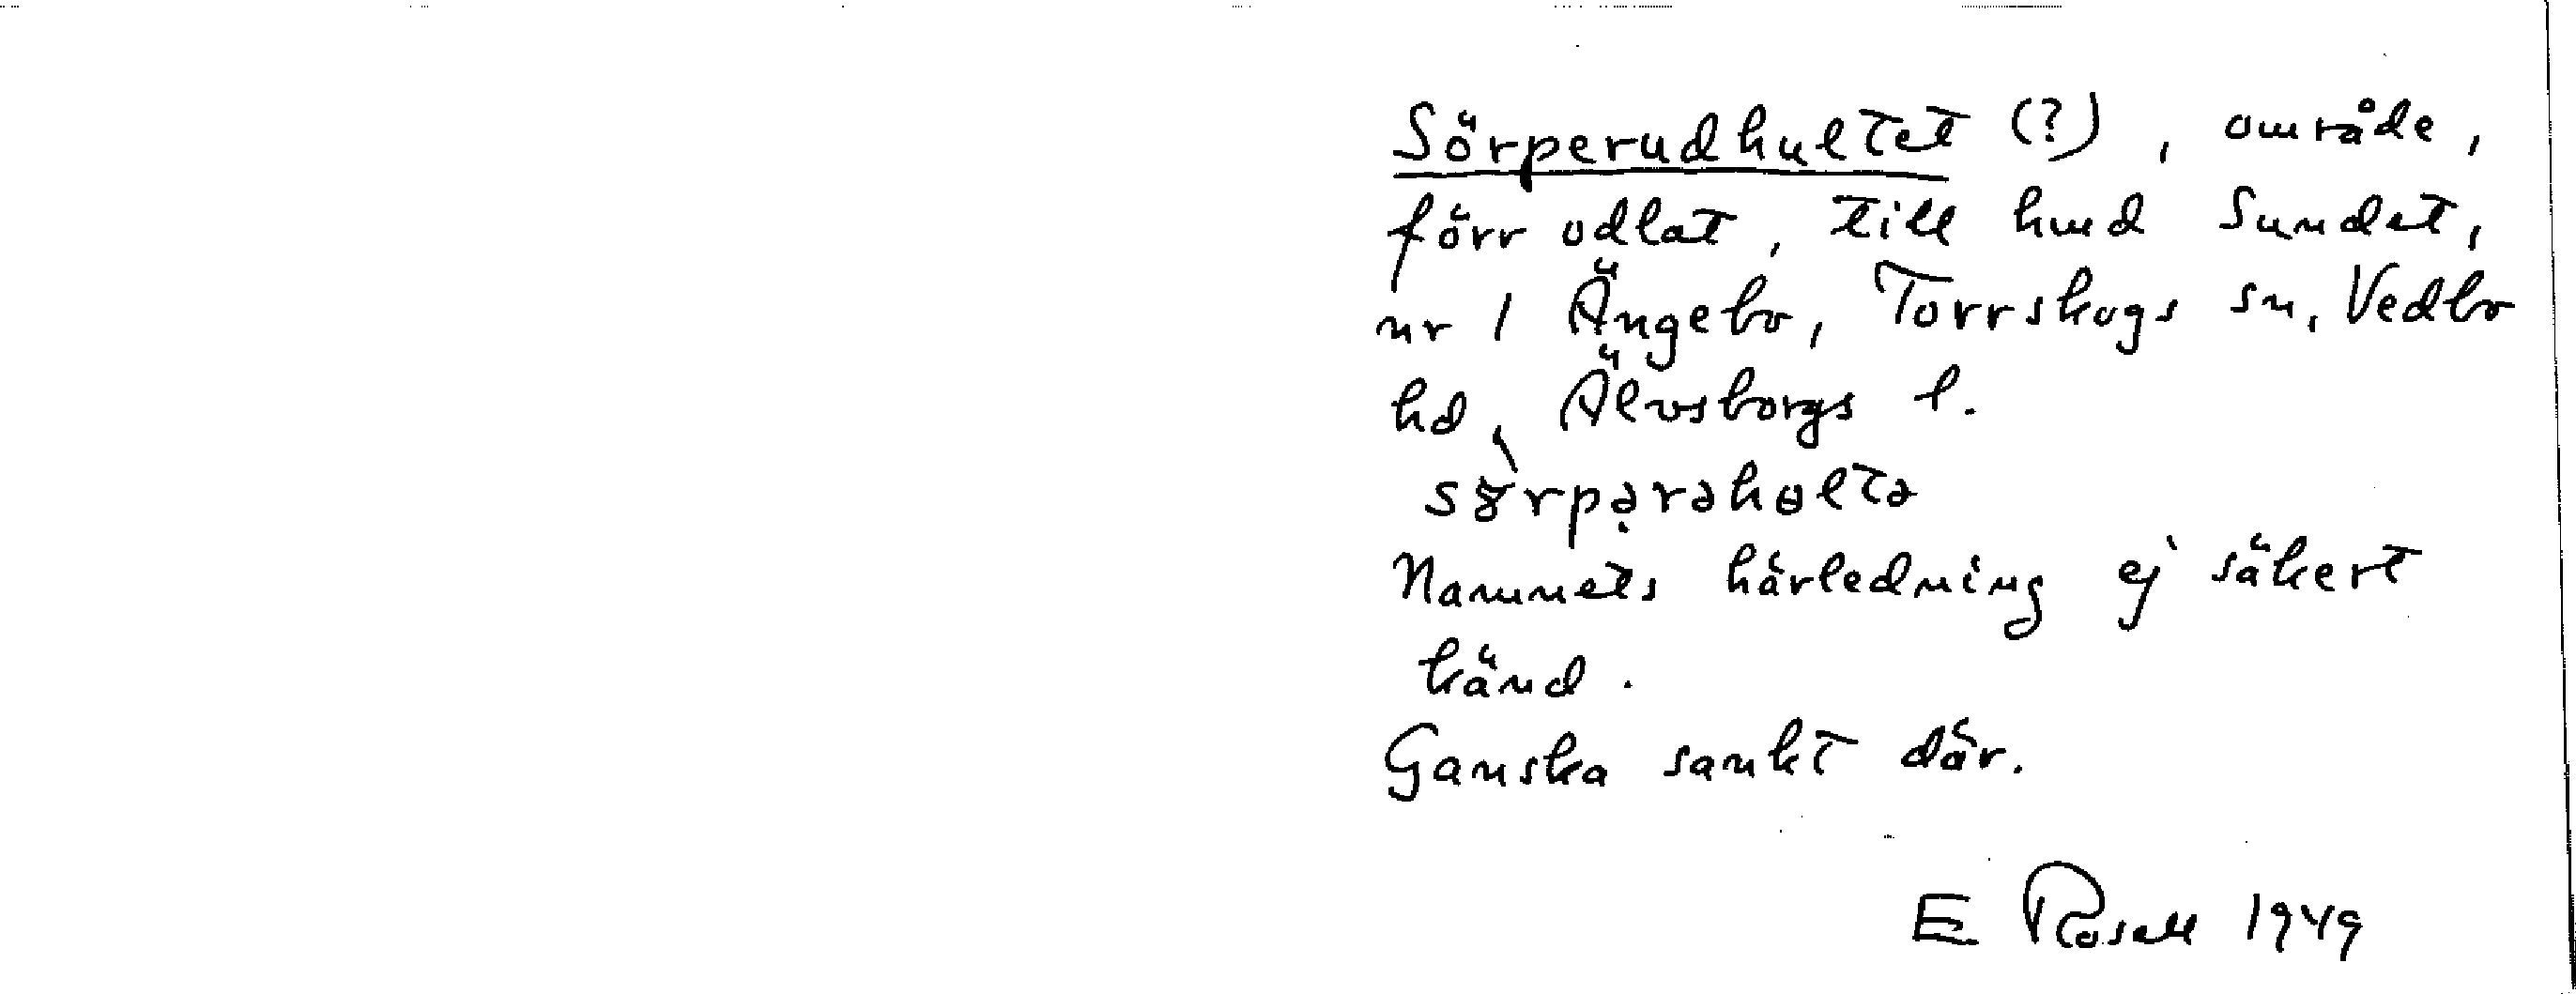 Sörperudhultet (?), område,
förr odlat, till hmd Sundet,
nr 1 Ängebo, Torrskogs sn, Vedbo
hd, Älvsborgs l.
Namnets härledning ej säkert
känd.
Ganska sankt där.
E Rosell 1949